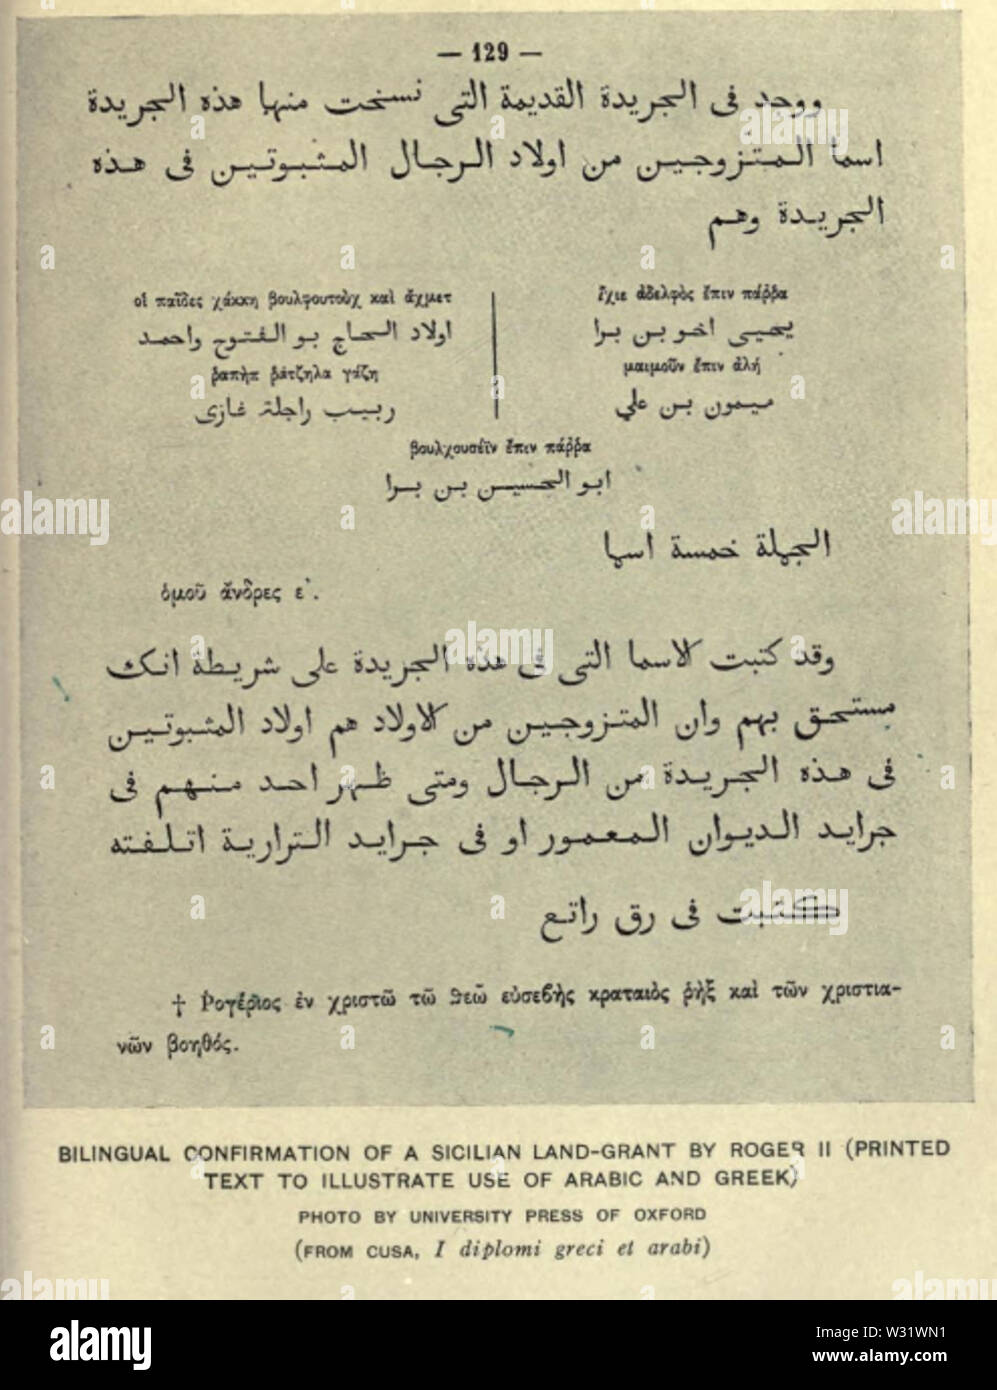 — 129 —
ووجد فى الجريدة القديمة التى نسخت منها هذه الجريدة
اسما المتزوجين من اولاد الرجال المثبوتين فى هذه
الجريدة وهم
οἱ παῖδες χάκκη βουλφουτοὺχ καὶ ἄχμετ
اولاد الحاج بو الفتوح واحمد
ῥαπὴπ ῥάτζηλα γάζη
ربيب راجلة غازى
ἴχιε ἀδελφὸς ἔπιν πάῤῥα
يحيى اخو بن برا
μαιμοῦν ἔπιν ἀλή
ميمون بن علي
βουλχουσέϊν ἔπιν πάῤῥα
ابو الحسين بن برا
الجملة خمسة اسما
ὁμοῦ ἄνδρες ε´.
وقد كتبت الاسما التى فى هذه الجريدة على شريطة انك
مستحق بهم وان المتزوجين من الاولاد هم اولاد المثبوتين
فى هذه الجريدة من الرجال ومتى ظهر احد منهم فى
جرايد الديوان المعمور او فى جرايد الترارية اتلفته
كتبت فى رق راتع
† Ῥογέριος ἐν χριστῶ τῶ θεῶ εὐσεβὴς κραταιὸς ῥὴξ καὶ τῶν χριστια-
νῶν βοηθός.
BILINGUAL CONFIRMATION OF A SICILIAN LAND-GRANT BY ROGER II (PRINTED
TEXT TO ILLUSTRATE USE OF ARABIC AND GREEK)
PHOTO BY UNIVERSITY PRESS OF OXFORD
(FROM CUSA, I diplomi greci et arabi)
alamy
Image ID: W31WN1
www.alamy.com